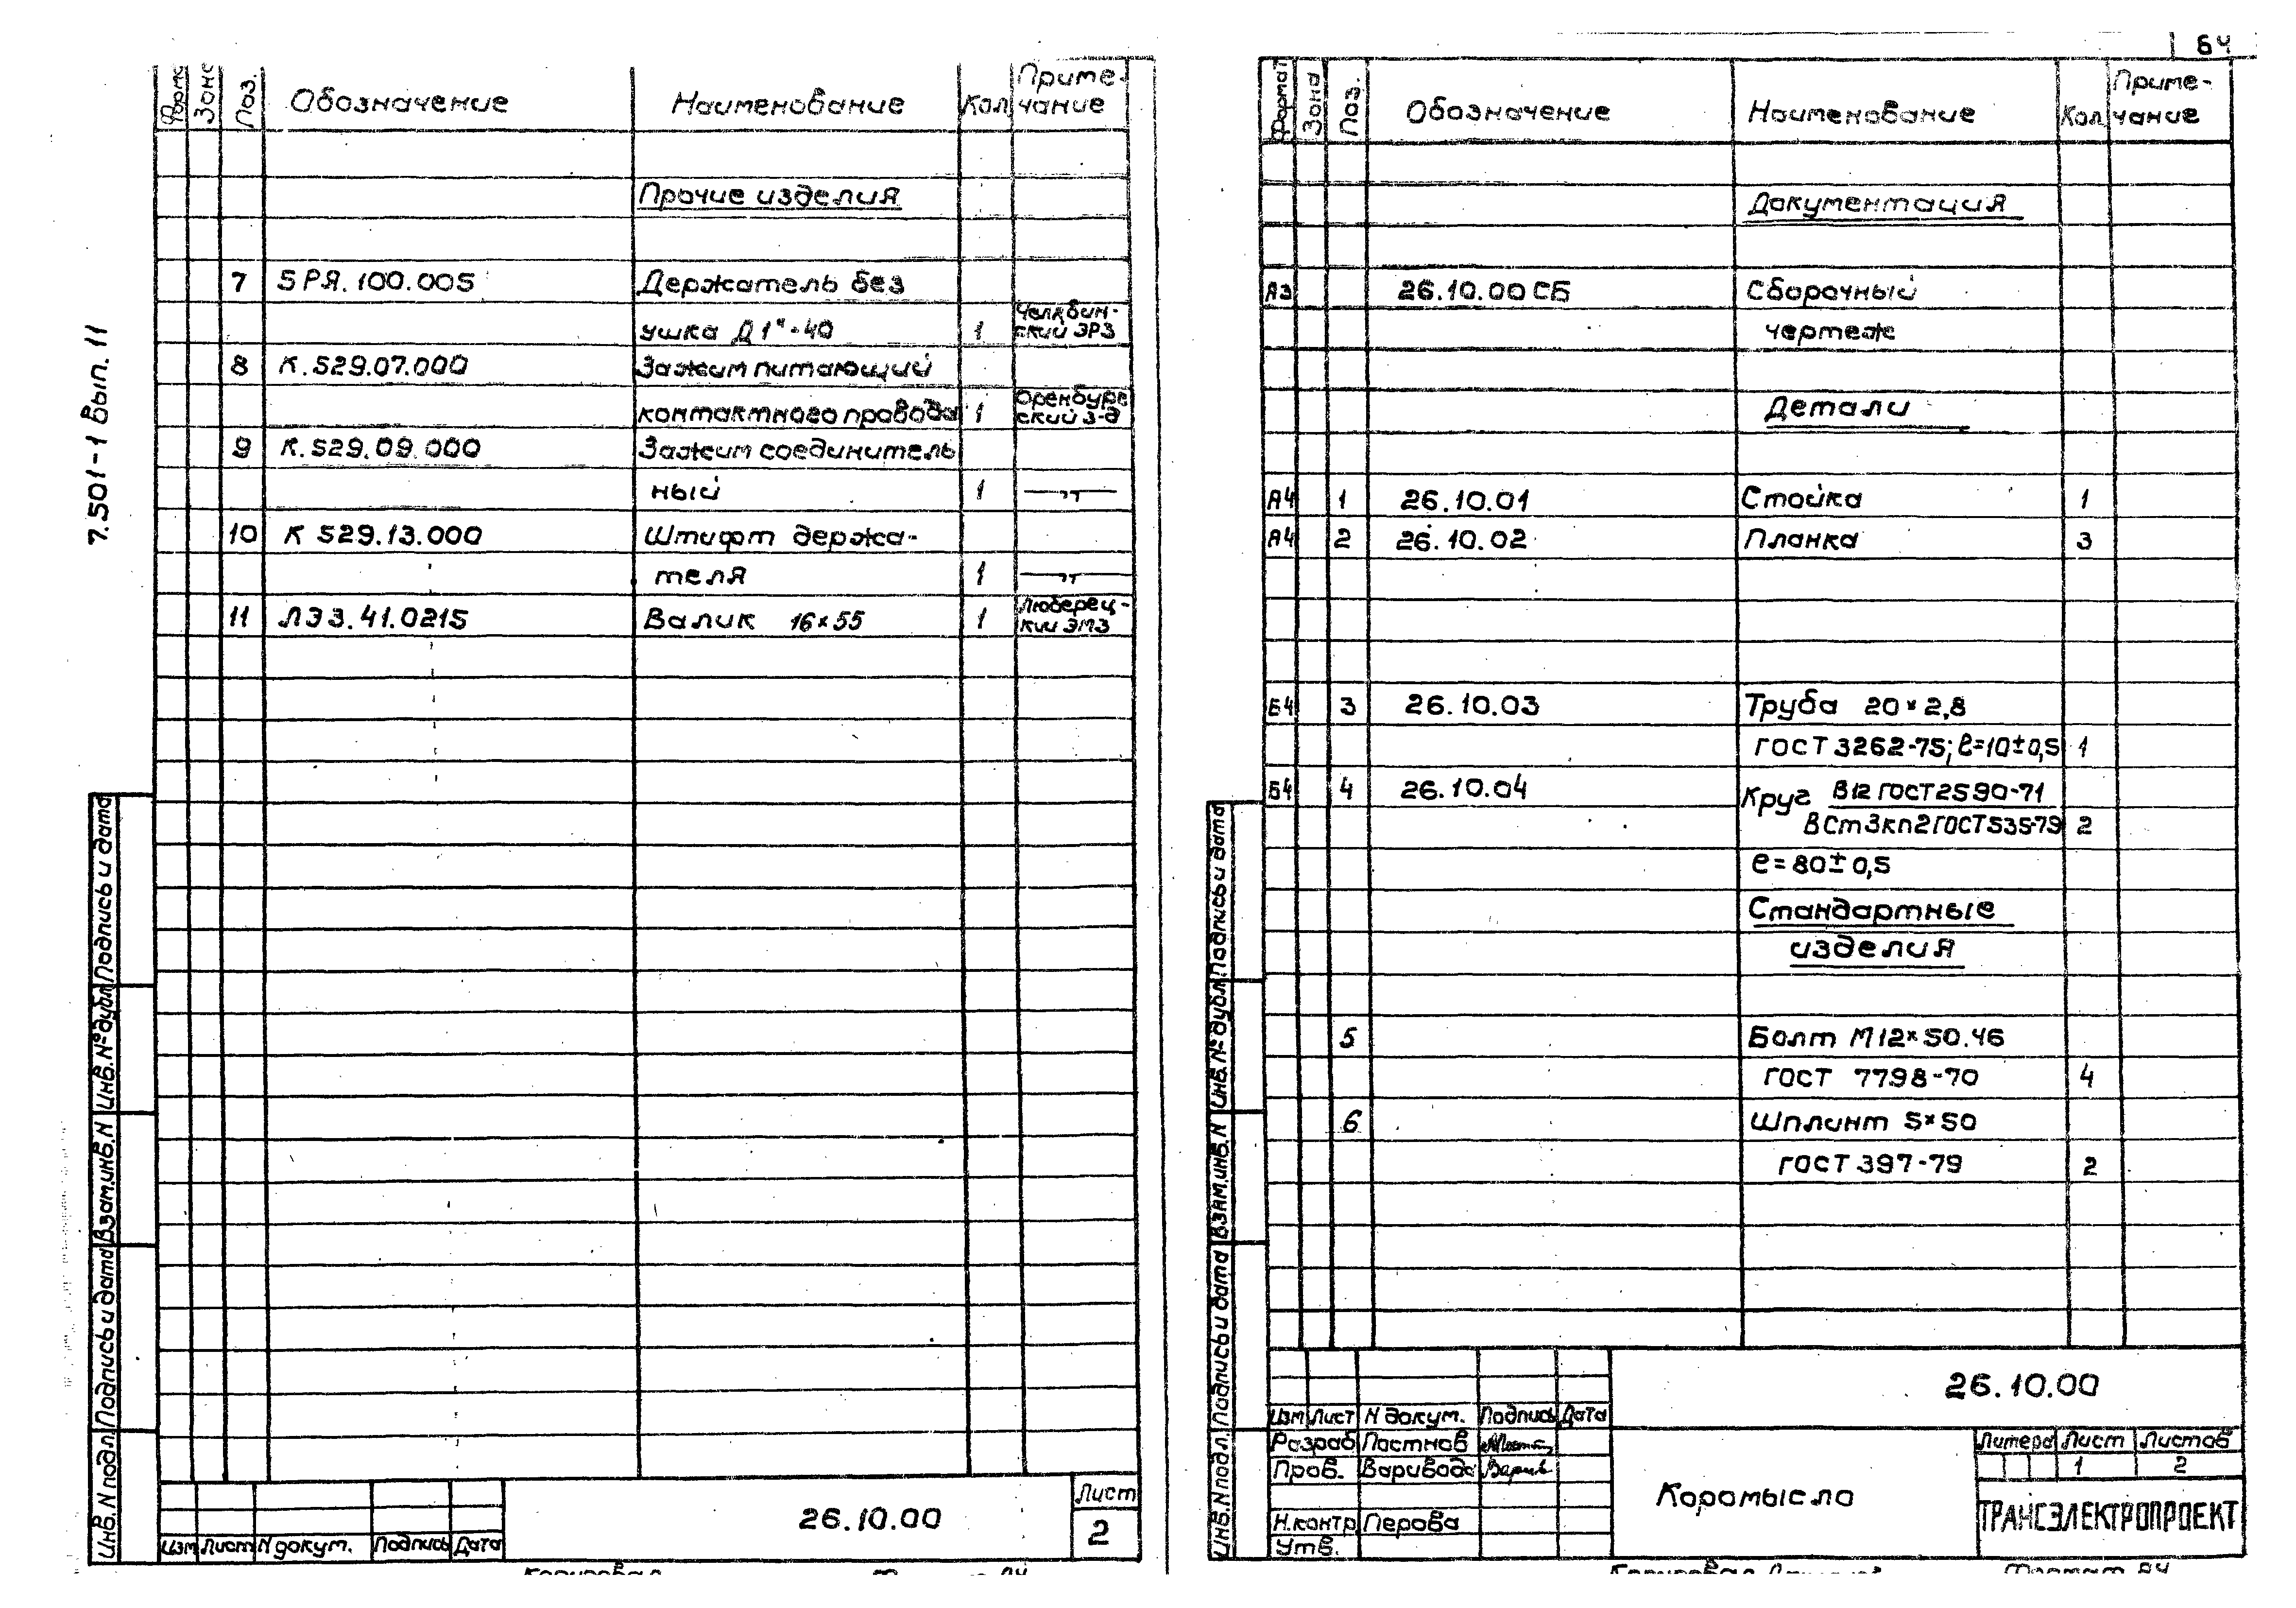 7.501-1 Вып. 11
Зона Поз. Обозначение Наименование Кол Приме-чание
Прочие изделия
7 5РЯ.100.005 Держатель без
ушка Д 1"-40 1 Челябин-ский ЭРЗ
8 К.529.07.000 Зажим питающий
контактного провода 1 Оренбург-ский з-д
9 К.529.09.000 Зажим соединитель
ный 1 —"—
10 К 529.13.000 Штифт держа-
теля 1 —"—
11 ЛЭЗ.41.0215 Валик 16×55 1 Люберец-кий ЭМЗ
Инв.N подл. Подпись и дата Взам.инв.N Инв.№ дубл Подпись и дата
Изм Лист N докум. Подпись Дата
26.10.00
Лист
2
64
Формат Зона Поз. Обозначение Наименование Кол Приме-чание
Документация
А3 26.10.00 СБ Сборочный
чертеж
Детали
А4 1 26.10.01 Стойка 1
А4 2 26.10.02 Планка 3
Б4 3 26.10.03 Труба 20×2,8
ГОСТ 3262-75; ℓ=10±0,5 1
Б4 4 26.10.04 Круг В12 ГОСТ 2590-71
ВСт3кп2 ГОСТ 535-79 2
ℓ=80±0,5
Стандартные
изделия
5 Болт М12×50.46
ГОСТ 7798-70 4
6 Шплинт 5×50
ГОСТ 397-79 2
Инв.N подл. Подпись и дата Взам.инв.N Инв.№ дубл Подпись и дата
26.10.00
Изм Лист N докум. Подпись Дата
Разраб Постнов
Пров. Варивода
Н.контр Перова
Утв.
Коромысло
Литера Лист Листов
1 2
ТРАНСЭЛЕКТРОПРОЕКТ
Копировал
Формат А4